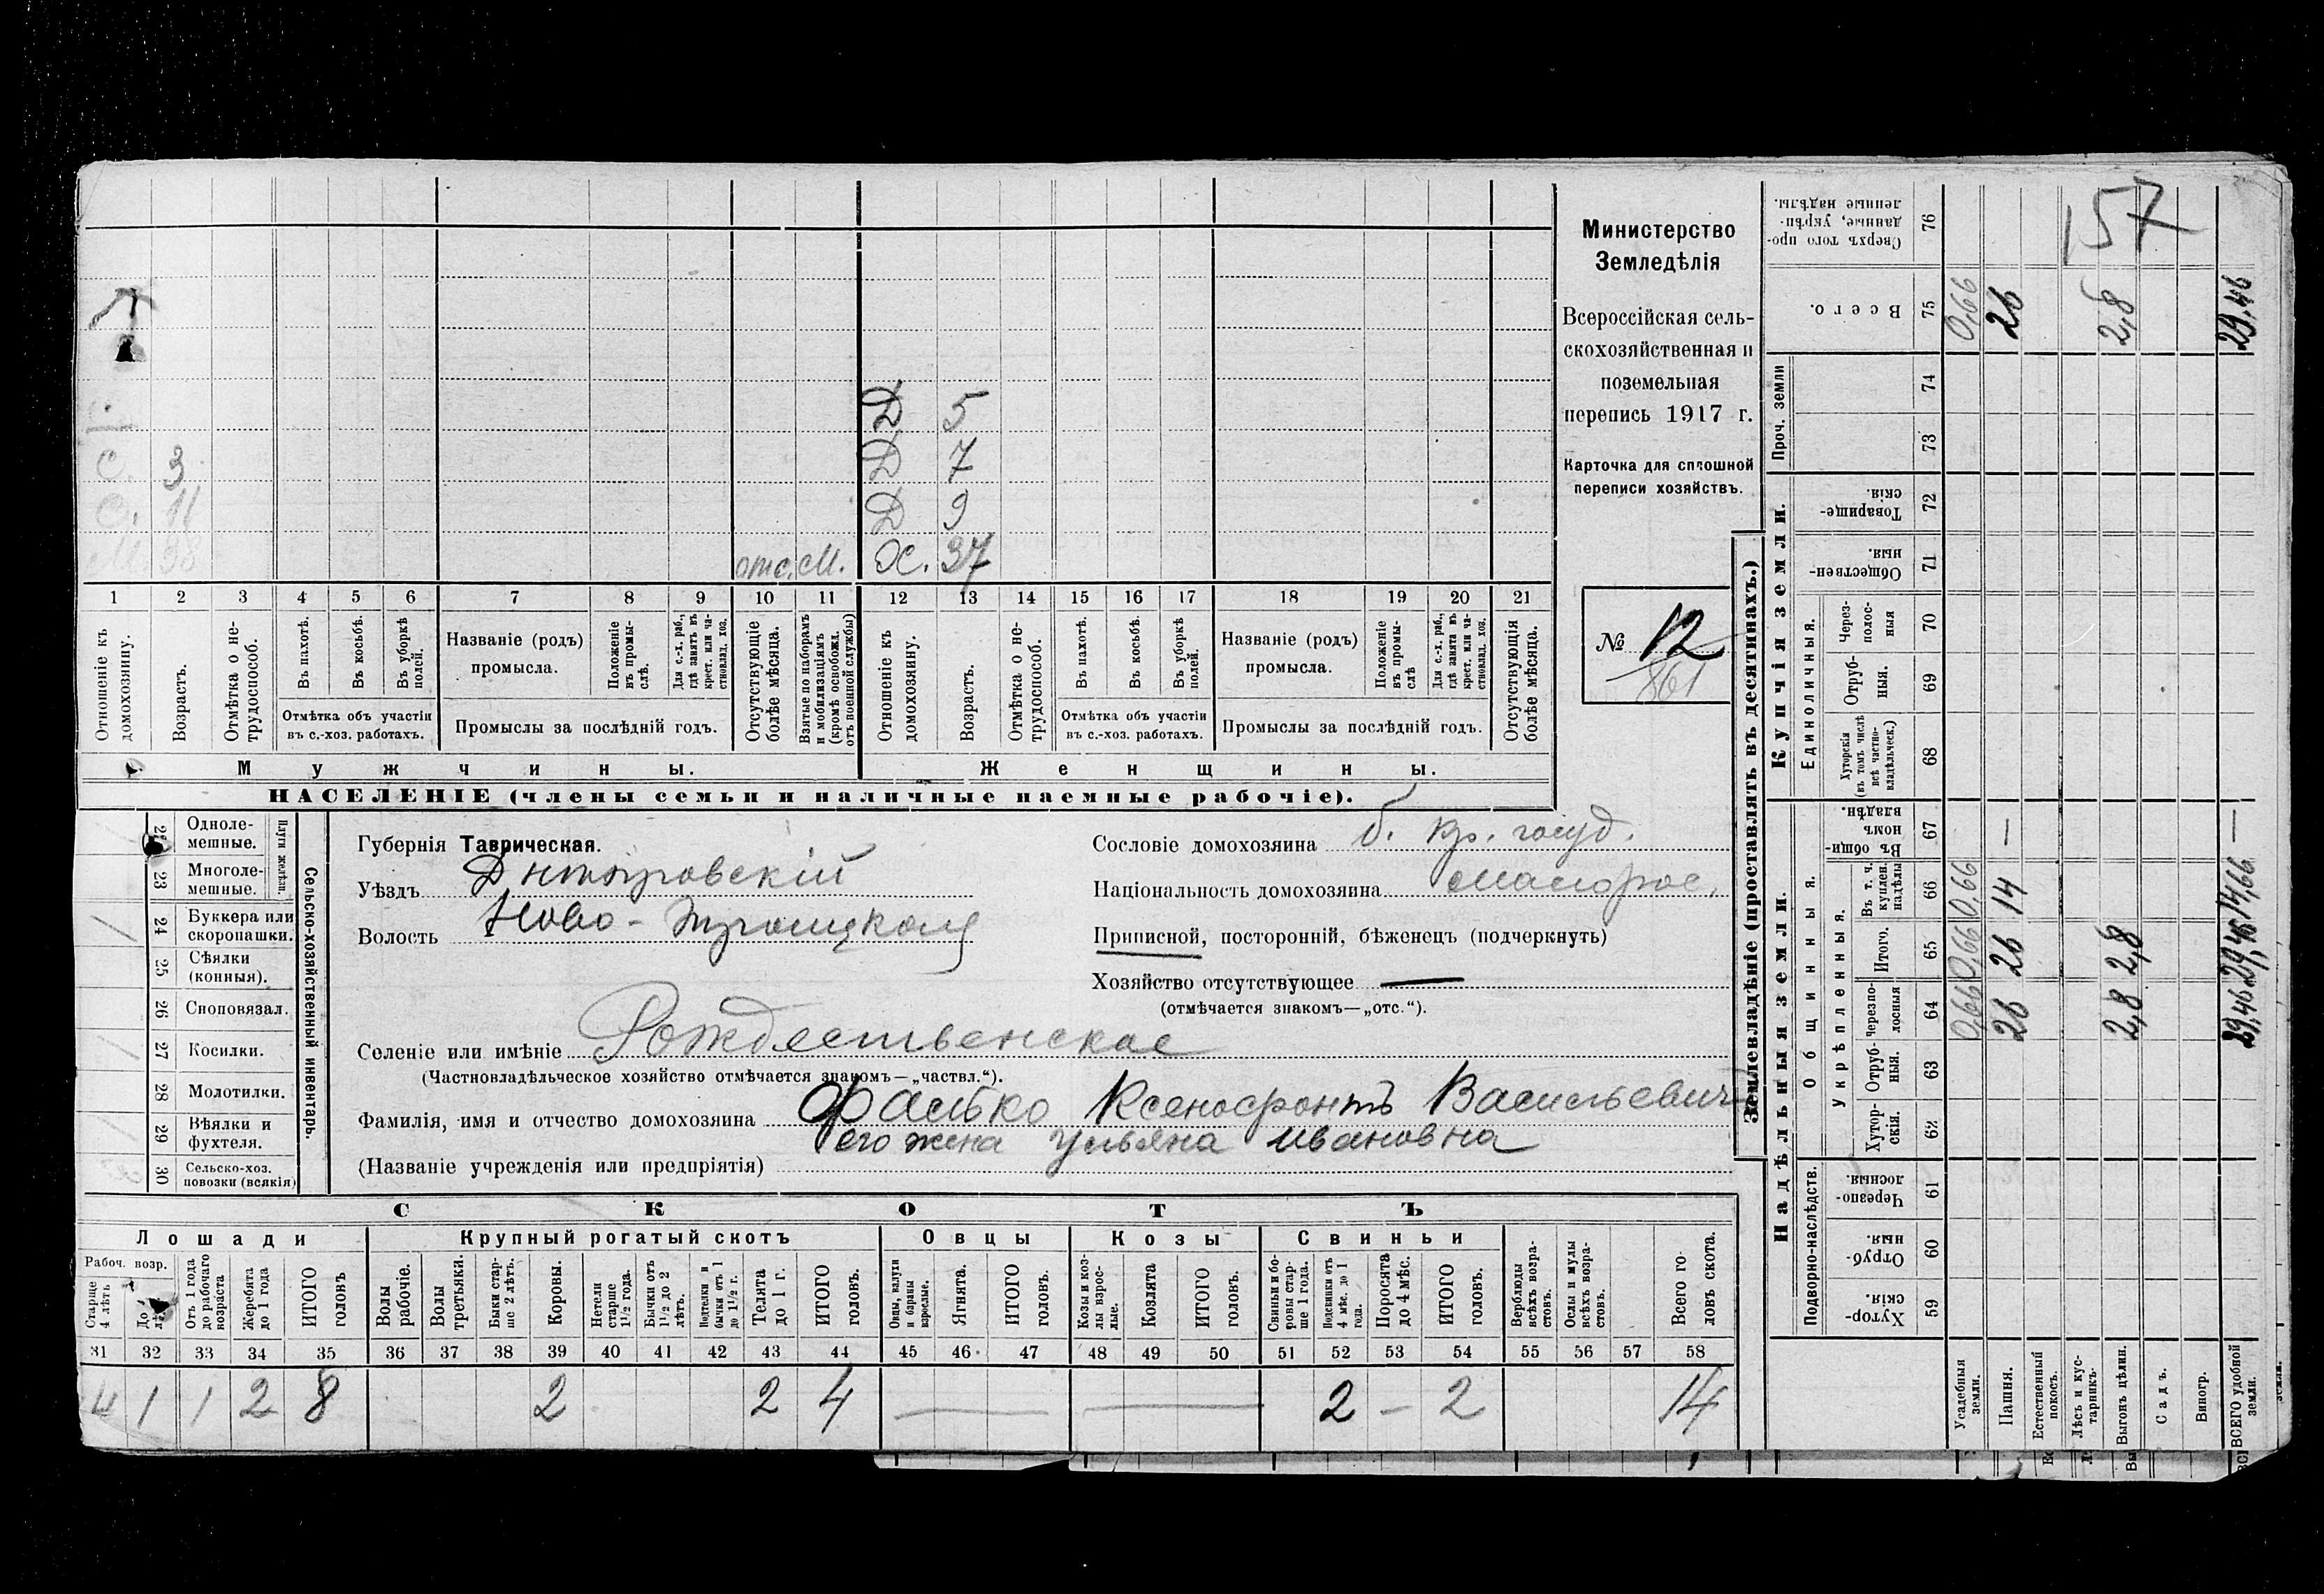 Д 5
С. 3 Д 7
С. 11 Д 9
М. 38 отс. М. Ж. 37
1 2 3 4 5 6 7 8 9 10 11 12 13 14 15 16 17 18 19 20 21
Отношеніе къ домохозяину.
Возрастъ.
Отмѣтка о не-трудоспособ.
Въ пахотѣ.
Въ косьбѣ.
Въ уборкѣ полей.
Отмѣтка объ участіи
въ с.-хоз. работахъ.
Названіе (родъ)
промысла.
Положеніе въ промы-слѣ.
Для с.-х. раб., гдѣ занятъ въ крест. или ча-стновлад. хоз.
Промыслы за послѣдній годъ.
Отсутствующіе болѣе мѣсяца.
Взятые по наборамъ и мобилизаціямъ (кромѣ освобожд. отъ военной службы)
Отношеніе къ домохозяину.
Возрастъ.
Отмѣтка о не-трудоспособ.
Въ пахотѣ.
Въ косьбѣ.
Въ уборкѣ полей.
Отмѣтка объ участіи
въ с.-хоз. работахъ.
Названіе (родъ)
промысла.
Положеніе въ промы-слѣ
Для с.-х. раб., гдѣ занята въ крест. или ча-стновлад. хоз.
Промыслы за послѣдній годъ.
Отсутствующія болѣе мѣсяца.
Мужчины. Женщины.
НАСЕЛЕНІЕ (члены семьи и наличные наемные рабочіе).
Министерство
Земледѣлія
Всероссійская сель-
скохозяйственная и
поземельная
перепись 1917 г.
Карточка для сплошной
переписи хозяйствъ.
№ 12
861
Сельско-хозяйственный инвентарь.
Плуги желѣзн.
Одноле-
мешные.
23 Многоле-
мешные.
24 Буккера или
скоропашки.
25 Сѣялки
(конныя).
26 Сноповязал.
27 Косилки.
28 Молотилки.
29 Вѣялки и
фухтеля.
30 Сельско-хоз.
повозки (всякія)
Губернія Таврическая.
Уѣздъ Днѣпровскій
Волость Ново-Троицкая
Селеніе или имѣніе Рождественское
(Частновладѣльческое хозяйство отмѣчается знакомъ—„частвл.“).
Фамилія, имя и отчество домохозяина Фалько Ксенофонтъ Васильевичъ
его жена Ульяна Ивановна
(Названіе учрежденія или предпріятія)
Сословіе домохозяина б. кр. госуд.
Національность домохозяина малорос.
Приписной, посторонній, бѣженецъ (подчеркнуть)
Хозяйство отсутствующее —
(отмѣчается знакомъ—„отс.“).
СКОТЪ
Лошади Крупный рогатый скотъ Овцы Козы Свиньи
Рабоч. возр.
Старше 4 лѣтъ
Отъ 1 года до рабочаго возраста
Жеребята до 1 года
ИТОГО головъ
Волы рабочіе.
Волы третьяки.
Быки стар-ше 2 лѣтъ.
Коровы.
Нетели старше 1½ года.
Бычки отъ 1½ до 2 лѣтъ.
Подтелки и бычки отъ 1 до 1½ г.
Телята до 1 г.
ИТОГО головъ.
Овцы, валухи и бараны взрослые.
Ягнята.
ИТОГО головъ.
Козы и коз-лы взрос-лые.
Козлята
ИТОГО головъ.
Свиньи и бо-ровы стар-ше 1 года.
Подсвинки отъ 4 мѣс. до 1 года.
Поросята до 4 мѣс.
ИТОГО головъ.
Верблюды всѣхъ возра-стовъ.
Ослы и мулы всѣхъ возра-стовъ.
Всего го-ловъ скота.
31 32 33 34 35 36 37 38 39 40 41 42 43 44 45 46 47 48 49 50 51 52 53 54 55 56 57 58
4 1 1 2 8 2 2 4 — — 2 — 2 14
Землевладѣніе (проставлять въ десятинахъ.)
Надѣльныя земли.
Купчія земли.
Подворно-наслѣдств.
Хутор-скія. 59
Отруб-ныя. 60
Черезпо-лосныя. 61
Общинныя.
Укрѣпленныя.
Хутор-скія. 62
Отруб-ныя. 63
Черезпо-лосныя 64
Итого. 65
Въ т. ч. куплен. надѣлы 66
Въ общи-номъ владѣн. 67
Единоличныя.
Хуторскія (въ томъ числѣ всѣ частно-владѣльческ.) 68
Отруб-ныя. 69
Через-полос-ныя 70
Обществен-ныя. 71
Товарище-скія. 72
Проч. земли
73 74
Всего. 75
Сверхъ того про-данные, укрѣп-ленные надѣлы. 76
157
Усадебныя земли. 0,66 0,66 0,66 0,66
Пашня. 26 26 14 — 26
Естественный покосъ.
Лѣсъ и кус-тарникъ.
Выгонъ цѣлин. 2,8 2,8 2,8
Садъ.
Виногр.
ВСЕГО удобной земли. 29,46 29,46 14,66 — 29,46